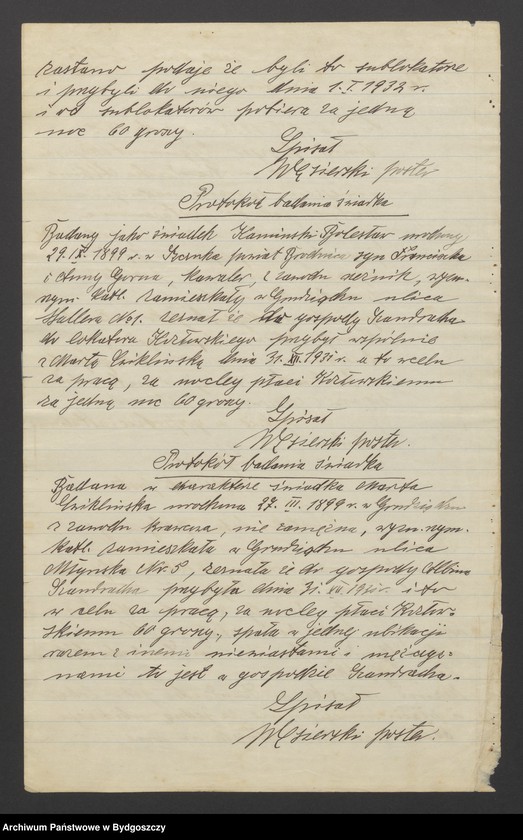 zastano podaje że byli to sublokatorzy
i przybyli do niego dnia 1.I.1932 r.
i od sublokatorów pobiera za jedną
noc 60 groszy.
Spisał
Węsierski poster.
Protokół badania świadka
Badany jako świadek Kamiński Bolesław urodzony
29.IX.1899 r. w powiat Brodnica syn Franciszka
i Anny Gorna, kawaler, z zawodu rzeźnik, wyzn.
rzym. Katl. zamieszkały w Grudziądzu ulica
Hallera No 1. zeznał że do gospody Szandracha
do lokatora Kozłowskiego przybył wspólnie
z Martą Cziklińską dnia 31.XII.1931 r. a to w celu
za pracą, za nocleg płaci Kozłowskiemu
za jedną noc 60 groszy.
Spisał
Węsierski poster.
Protokół badania świadka
Badana w charakterze świadka Marta
Cziklińska urodzona 27. III. 1899 r. w Grudziądzu
z zawodu krawcza, nie zamężna, wyzn. rzym.
Katl. zamieszkała w Grudziądzu ulica
Młyńska Nr. 5, zeznała że do gospody Albina
Szandracha przybyła dnia 31. XII. 1931 r. i to
w celu za pracą, za nocleg płaci Kozłow-
skiemu 60 groszy, spała w jednej ubikacji
razem z innemi niewiastami i mężczyz-
nami to jest w gospodzie Szandracha.
Spisał
Węsierski poster.
Archiwum Państwowe w Bydgoszczy